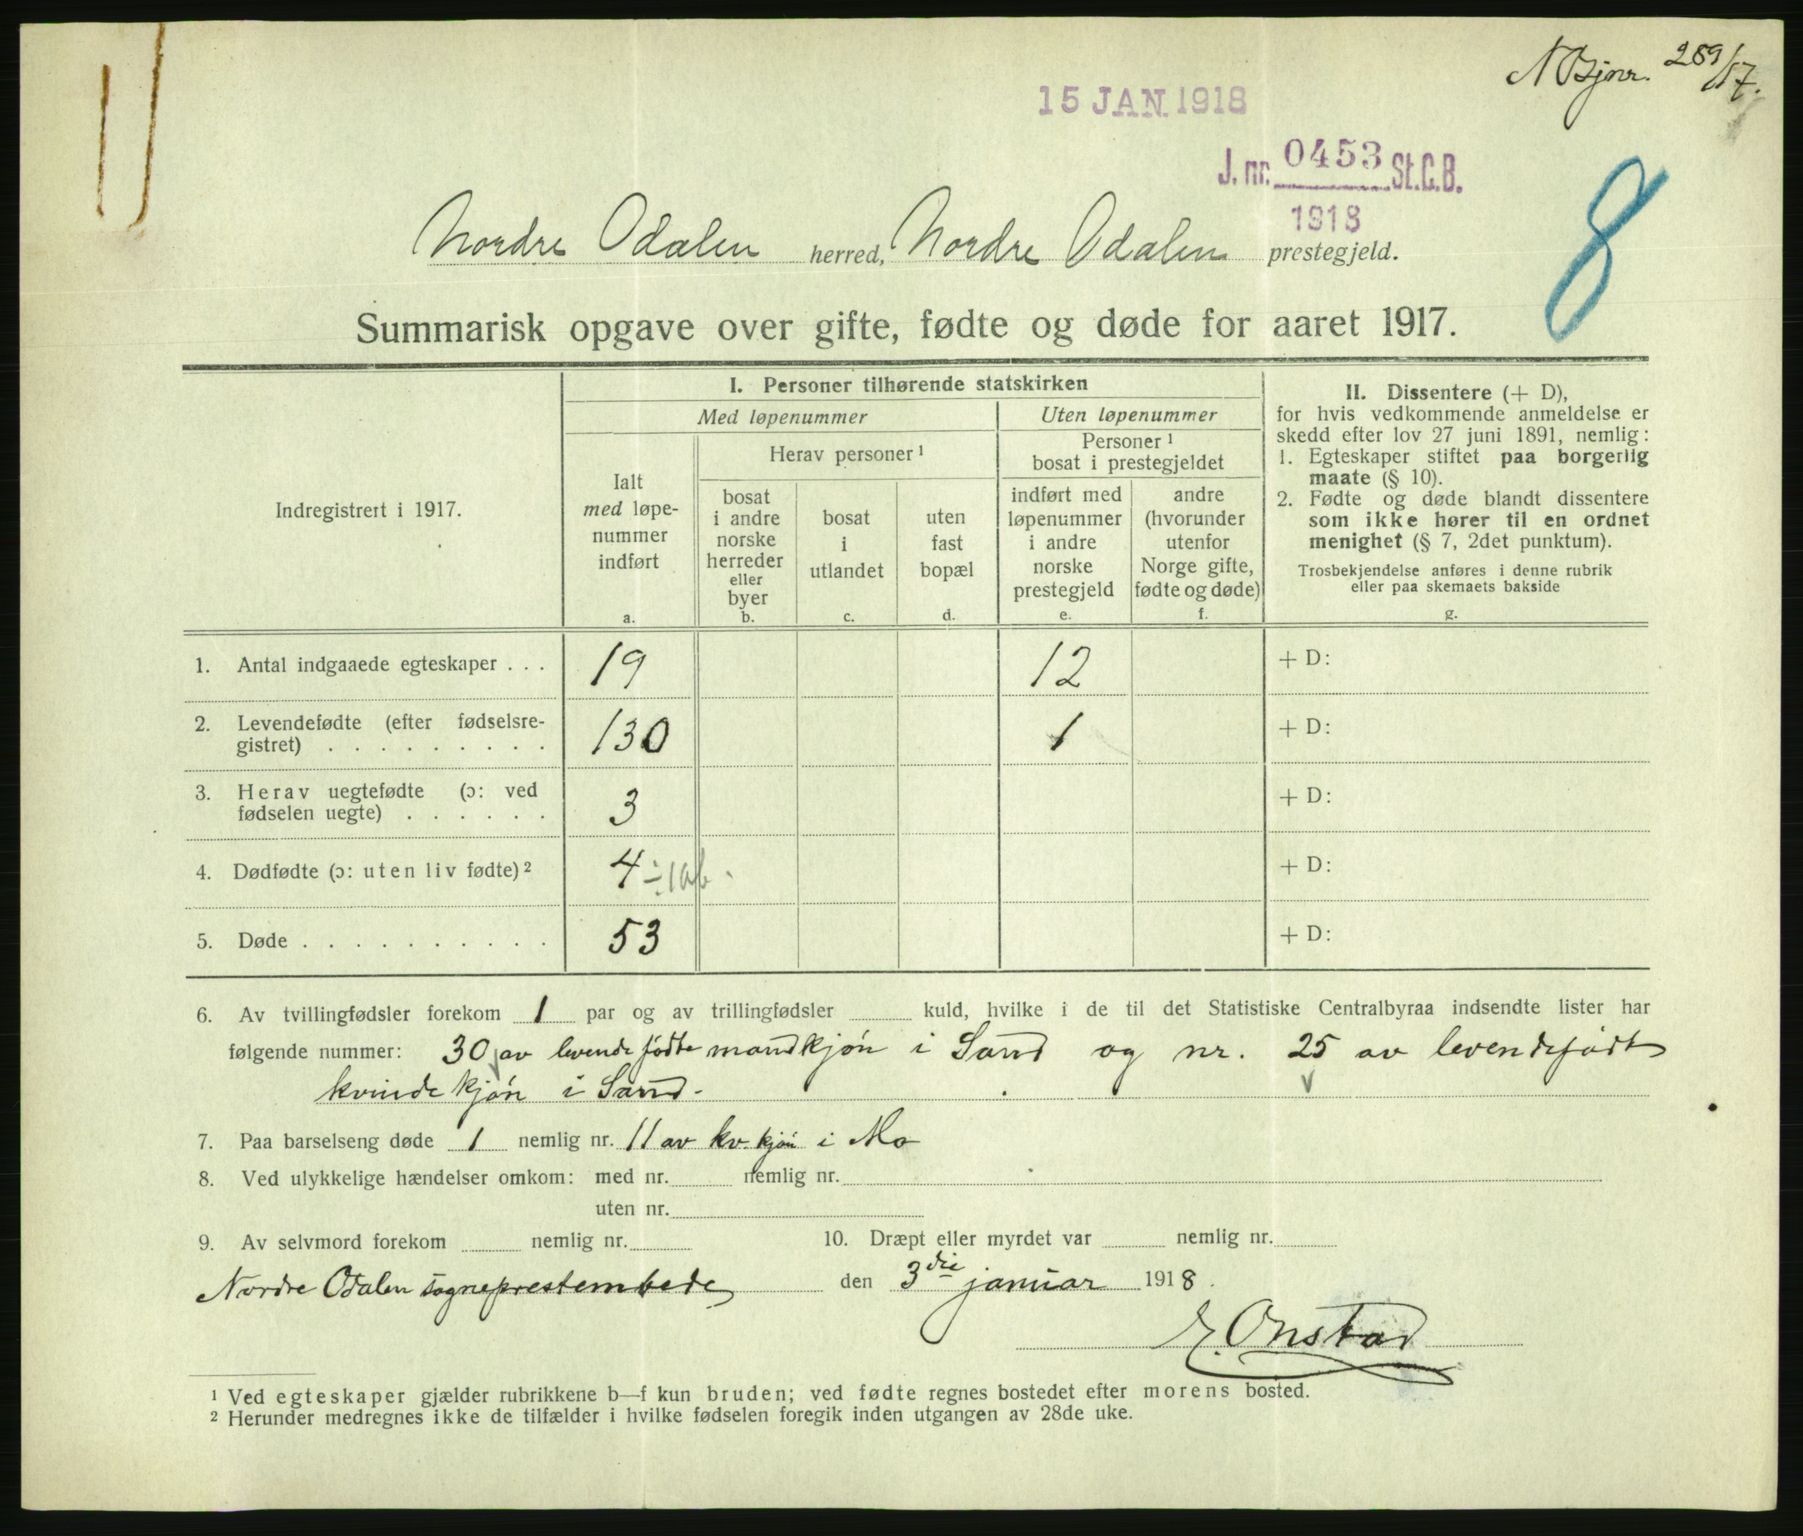 N Bjnr. 289/17.
15 JAN. 1918
J. nr. 0453 St.C.B.
1918
8
Nordre Odalen herred, Nordre Odalen prestegjeld.
Summarisk opgave over gifte, fødte og døde for aaret 1917.
Indregistrert i 1917.
I. Personer tilhørende statskirken
Med løpenummer
Uten løpenummer
Ialt
med løpe-
nummer
indført
a.
Herav personer 1
bosat
i andre
norske
herreder
eller
byer
b.
bosat
i
utlandet
c.
uten
fast
bopæl
d.
Personer 1
bosat i prestegjeldet
indført med
løpenummer
i andre
norske
prestegjeld
e.
andre
(hvorunder
utenfor
Norge gifte,
fødte og døde)
f.
II. Dissentere (+ D),
for hvis vedkommende anmeldelse er
skedd efter lov 27 juni 1891, nemlig:
1. Egteskaper stiftet paa borgerlig
maate (§ 10).
2. Fødte og døde blandt dissentere
som ikke hører til en ordnet
menighet (§ 7, 2det punktum).
Trosbekjendelse anføres i denne rubrik
eller paa skemaets bakside
g.
1. Antal indgaaede egteskaper . . . 19 12 + D:
2. Levendefødte (efter fødselsre-
gistret) . . . . . . . . . 130 1 + D:
3. Herav uegtefødte (ɔ: ved
fødselen uegte) . . . . . . 3 + D:
4. Dødfødte (ɔ: uten liv fødte) 2 4 ÷ 1 ab. + D:
5. Døde . . . . . . . . . . 53 + D:
6. Av tvillingfødsler forekom 1 par og av trillingfødsler kuld, hvilke i de til det Statistiske Centralbyraa indsendte lister har
følgende nummer: 30 av levendefødte mandkjøn i Sand og nr. 25 av levendefødt
kvindekjøn i Sand.
7. Paa barselseng døde 1 nemlig nr. 11 av kv. kjøn i Mo
8. Ved ulykkelige hændelser omkom: med nr. nemlig nr.
uten nr.
9. Av selvmord forekom nemlig nr. 10. Dræpt eller myrdet var nemlig nr.
Nordre Odalen sogneprestembede den 3die januar 1918.
E. Onstad
1 Ved egteskaper gjælder rubrikkene b—f kun bruden; ved fødte regnes bostedet efter morens bosted.
2 Herunder medregnes ikke de tilfælder i hvilke fødselen foregik inden utgangen av 28de uke.